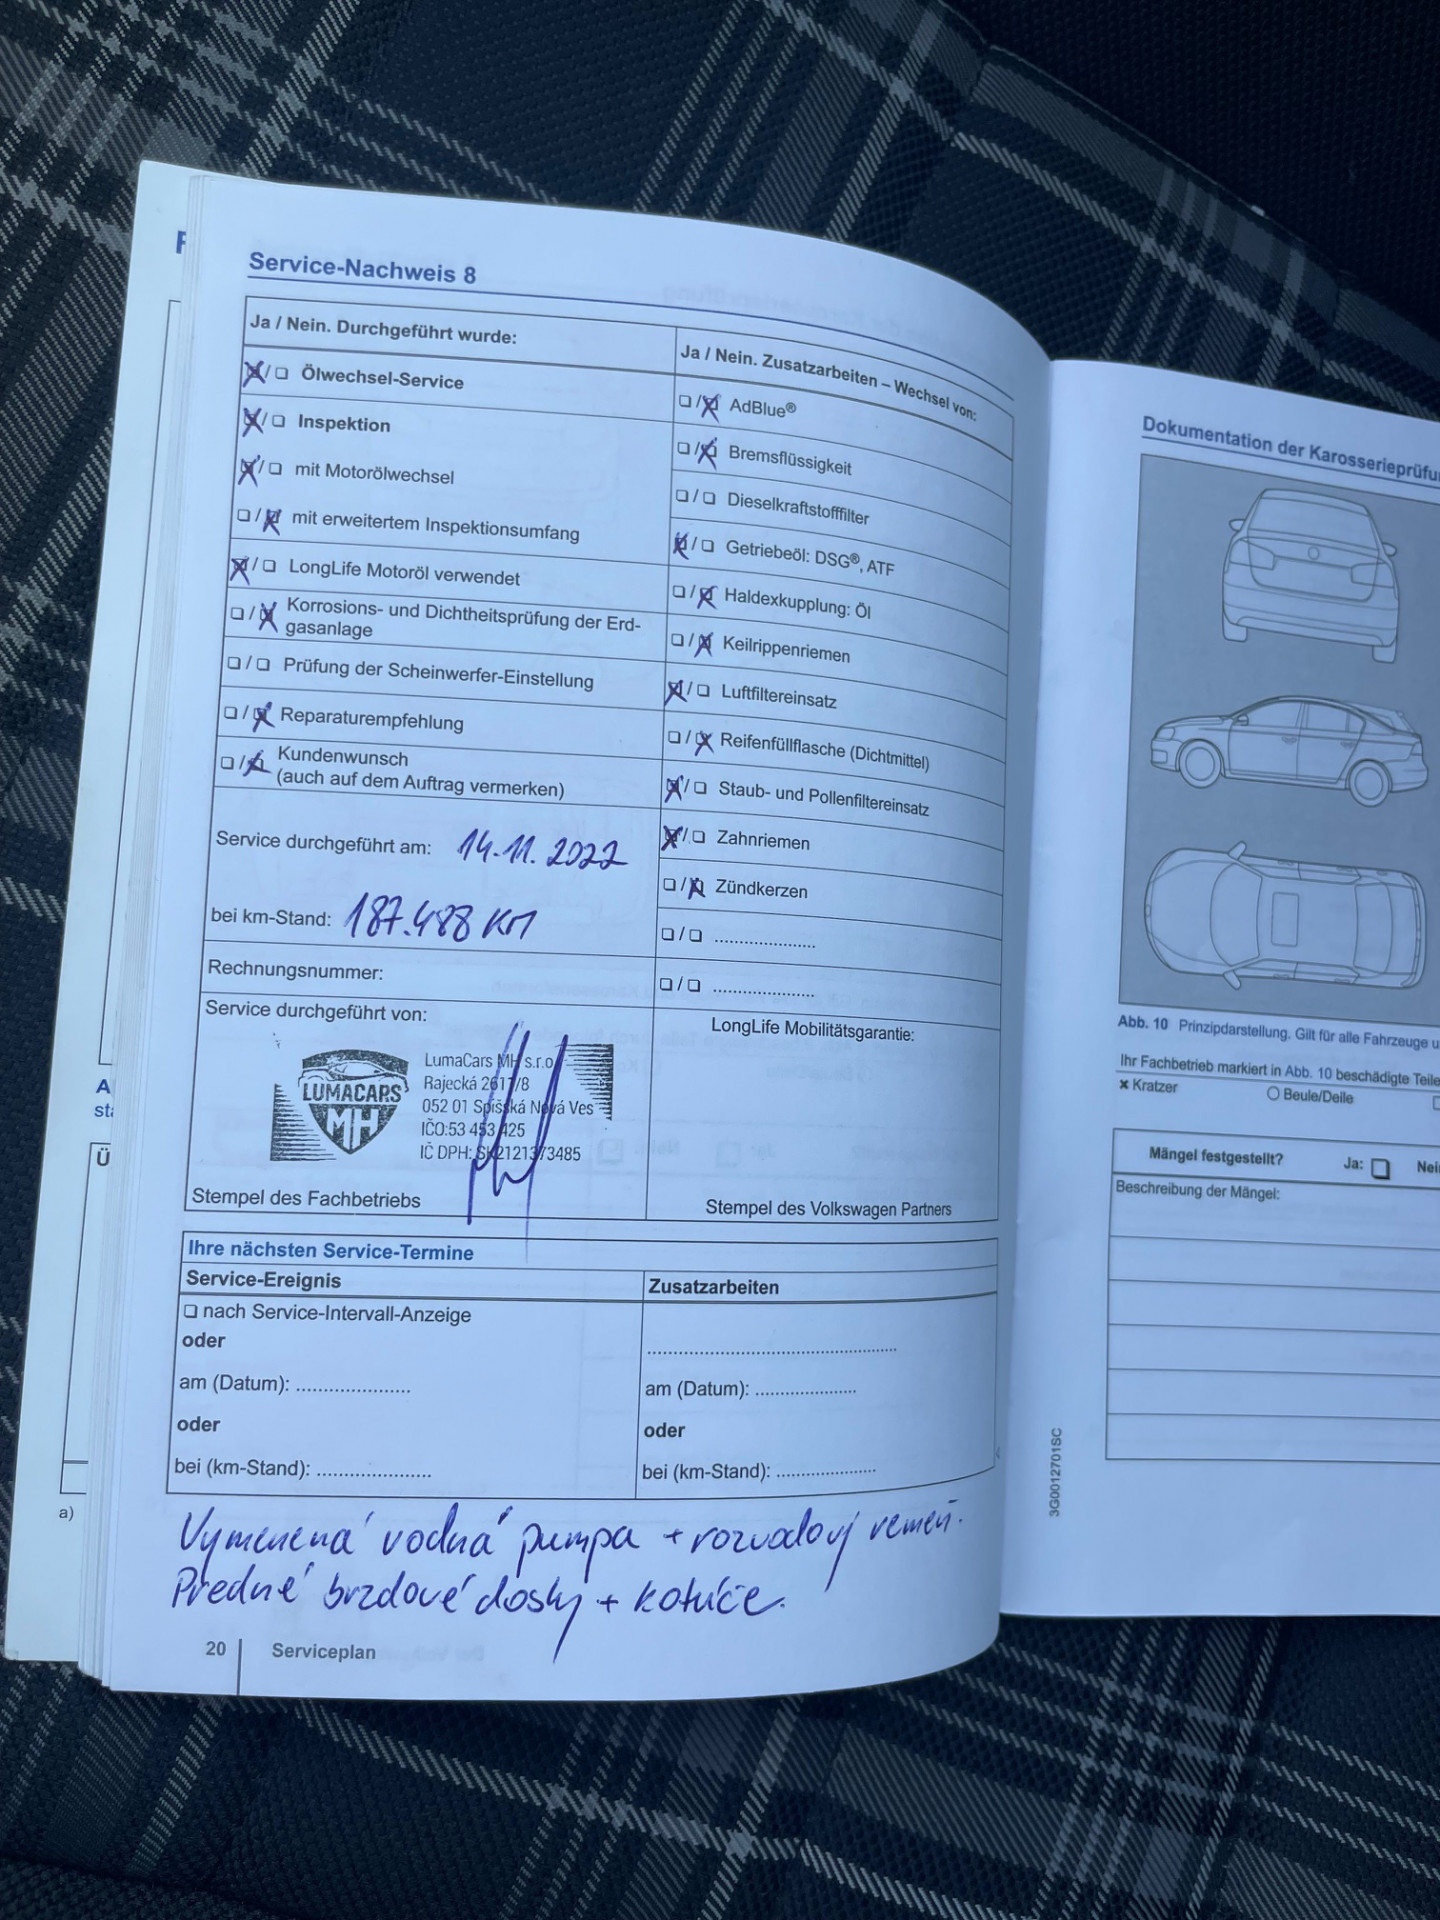 Service-Nachweis 8
Ja / Nein. Durchgeführt wurde:
☒/☐ Ölwechsel-Service
☒/☐ Inspektion
☒/☐ mit Motorölwechsel
☐/☒ mit erweitertem Inspektionsumfang
☒/☐ LongLife Motoröl verwendet
☐/☒ Korrosions- und Dichtheitsprüfung der Erd-
gasanlage
☐/☐ Prüfung der Scheinwerfer-Einstellung
☐/☒ Reparaturempfehlung
☐/☒ Kundenwunsch
(auch auf dem Auftrag vermerken)
Service durchgeführt am: 14.11.2022
bei km-Stand: 187.488 KM
Rechnungsnummer:
Service durchgeführt von:
LUMACARS
MH
LumaCars MH s.r.o
Rajecká 2617/8
052 01 Spišská Nová Ves
IČO:53 453 425
IČ DPH: SK2121373485
Stempel des Fachbetriebs
Ja / Nein. Zusatzarbeiten – Wechsel von:
☐/☒ AdBlue®
☐/☒ Bremsflüssigkeit
☐/☐ Dieselkraftstofffilter
☒/☐ Getriebeöl: DSG®, ATF
☐/☒ Haldexkupplung: Öl
☐/☒ Keilrippenriemen
☒/☐ Luftfiltereinsatz
☐/☒ Reifenfüllflasche (Dichtmittel)
☒/☐ Staub- und Pollenfiltereinsatz
☒/☐ Zahnriemen
☐/☒ Zündkerzen
☐/☐ ....................
☐/☐ ....................
LongLife Mobilitätsgarantie:
Stempel des Volkswagen Partners
Ihre nächsten Service-Termine
Service-Ereignis
☐ nach Service-Intervall-Anzeige
oder
am (Datum): ....................
oder
bei (km-Stand): ....................
Zusatzarbeiten
............................................
am (Datum): ..................
oder
bei (km-Stand): ..................
Vymenená vodná pumpa + rozvodový remeň.
Predné brzdové dosky + kotúče.
20 Serviceplan
A
Ü
a)
Dokumentation der Karosserieprüfu
Abb. 10 Prinzipdarstellung. Gilt für alle Fahrzeuge
Ihr Fachbetrieb markiert in Abb. 10 beschädigte Teile
× Kratzer ○ Beule/Delle
Mängel festgestellt? Ja: ☐ Nei
Beschreibung der Mängel:
3G0012701SC